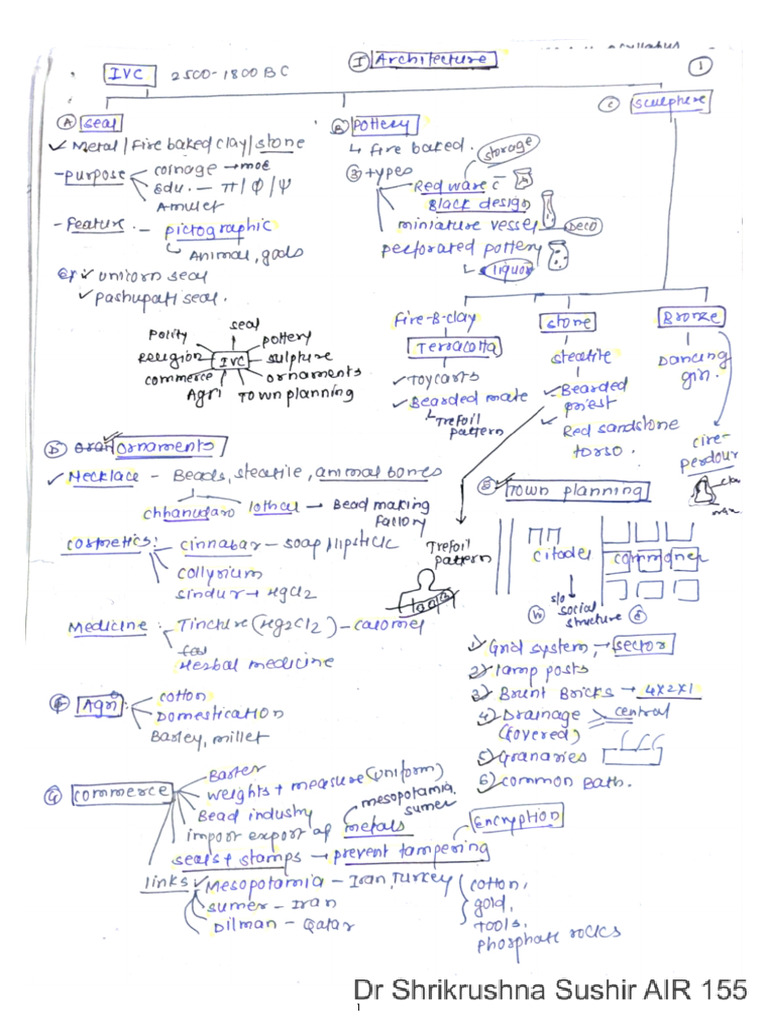 I Architecture
1
IVC 2500-1800 BC
A seal
✓ Metal/Fire baked clay/stone
- purpose
coinage → moE
Edu. - π/Φ/Ψ
Amulet
- Feature. - pictographic
Animal, gods
Eg ✓ unicorn seal
✓ Pashupati seal.
B Pottery
↳ fire baked.
③ types
storage
Red ware c̄
Black design
miniature vessel - Deco
perforated pottery
↳ liquor
C Sculpture
Fire-B-clay
Terracotta
✓ Toy carts
✓ Bearded mate
↳ Trefoil
pattern
stone
steatite
✓ Bearded
priest
✓ Red sandstone
torso.
Bronze
Dancing
girl.
cire-
perdour
seal
Polity
pottery
Religion
IVC
sulpture
commerce
ornaments
Agri
Town planning
D ornaments
✓ Necklace - Beads, steatile, animal bones
chhanudaro lothal → Bead making
factory
cosmetics:
- cinnabar - soap/lipstick
collyrium
sindur → HgCl2
Medicine: - Tincture (Hg2Cl2) - calomel
few
Herbal medicine
Trefoil
pattern
E Town planning
citadel
commoner
s/o
social
structure
1) Grid system, → sector
2) lamp posts
3) Brunt Bricks → 4x2x1
4) Drainage central
(covered)
5) Granaries
6) common Bath.
F Agri:
- cotton
Domestication
Barley, millet
G commerce
Barter
weights + measure (uniform)
Bead industry
mesopotamia,
sumer
import export of metals
seals + stamps → prevent tampering
Encryption
links ✓ Mesopotamia - Iran, Turkey
sumer - Iran
Dilman - Qatar
cotton,
gold,
tools,
phosphate rocks
Dr Shrikrushna Sushir AIR 155
1